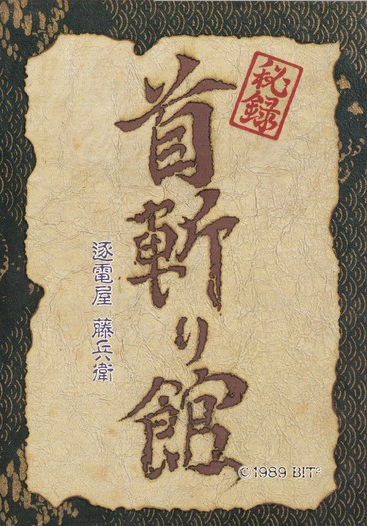 秘録
首斬り館
逐電屋 藤兵衛
©1989 BIT²